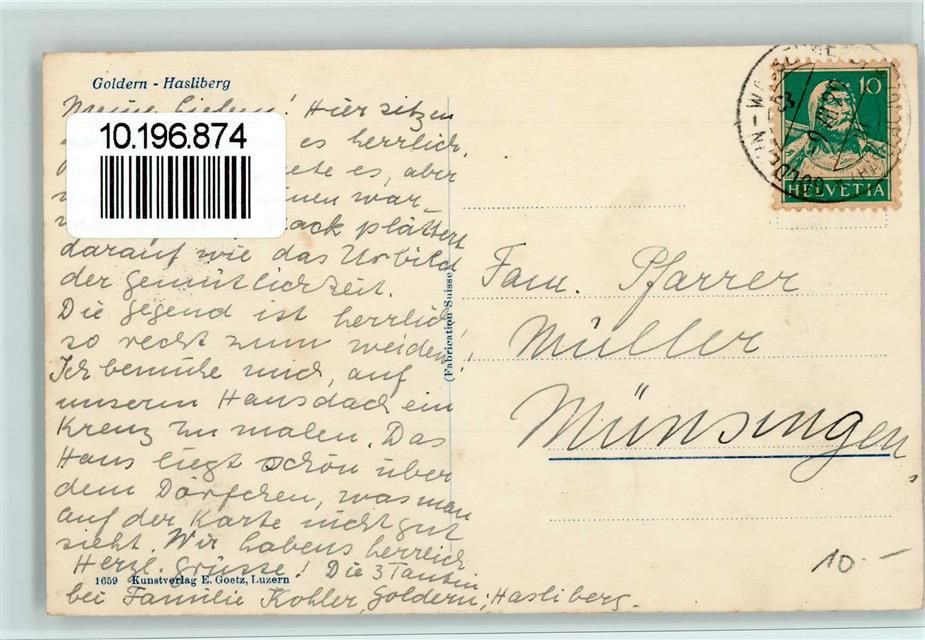 Goldern - Hasliberg
Meine Lieben! Hier sitzen
10.196.874
es herrlich.
es, aber
war
plättert
darauf wie das Urbild
der Gemütlichkeit.
Die Gegend ist herrlich
so recht zum weiden!
Ich bemühe mich, auf
unserm Hausdach ein
Kreuz zu malen. Das
Haus liegt schön über
dem Dörfchen, was man
auf der Karte nicht gut
sieht. Wir habens herrlich
Herzl. Grüsse! Die 3 Tanten
1659 Kunstverlag E. Goetz, Luzern
bei Familie Kohler, Goldern, Hasliberg.
(Fabrication Suisse)
10
HELVETIA
Fam. Pfarrer
Müller
Münsingen
10.-